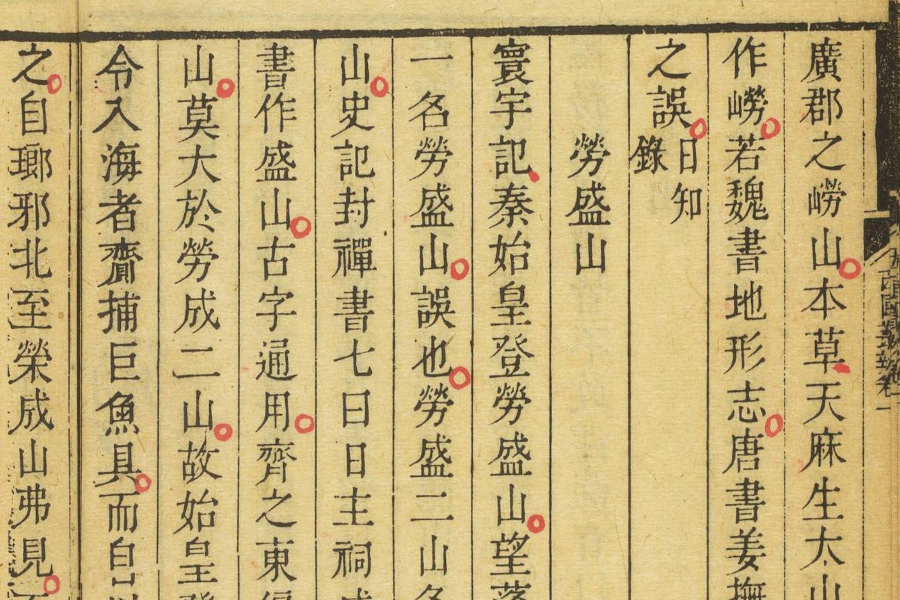 廣郡之嶗山本草天麻生太山
作嶗若魏書地形志唐書姜撫
之誤日知錄
勞盛山
寰宇記秦始皇登勞盛山望蓬
一名勞盛山誤也勞盛二山名
山史記封禪書七曰日主祠成
書作盛山古字通用齊之東偏
山莫大於勞成二山故始皇登
令入海者齎捕巨魚具而自以
之自瑯邪北至榮成山弗見至